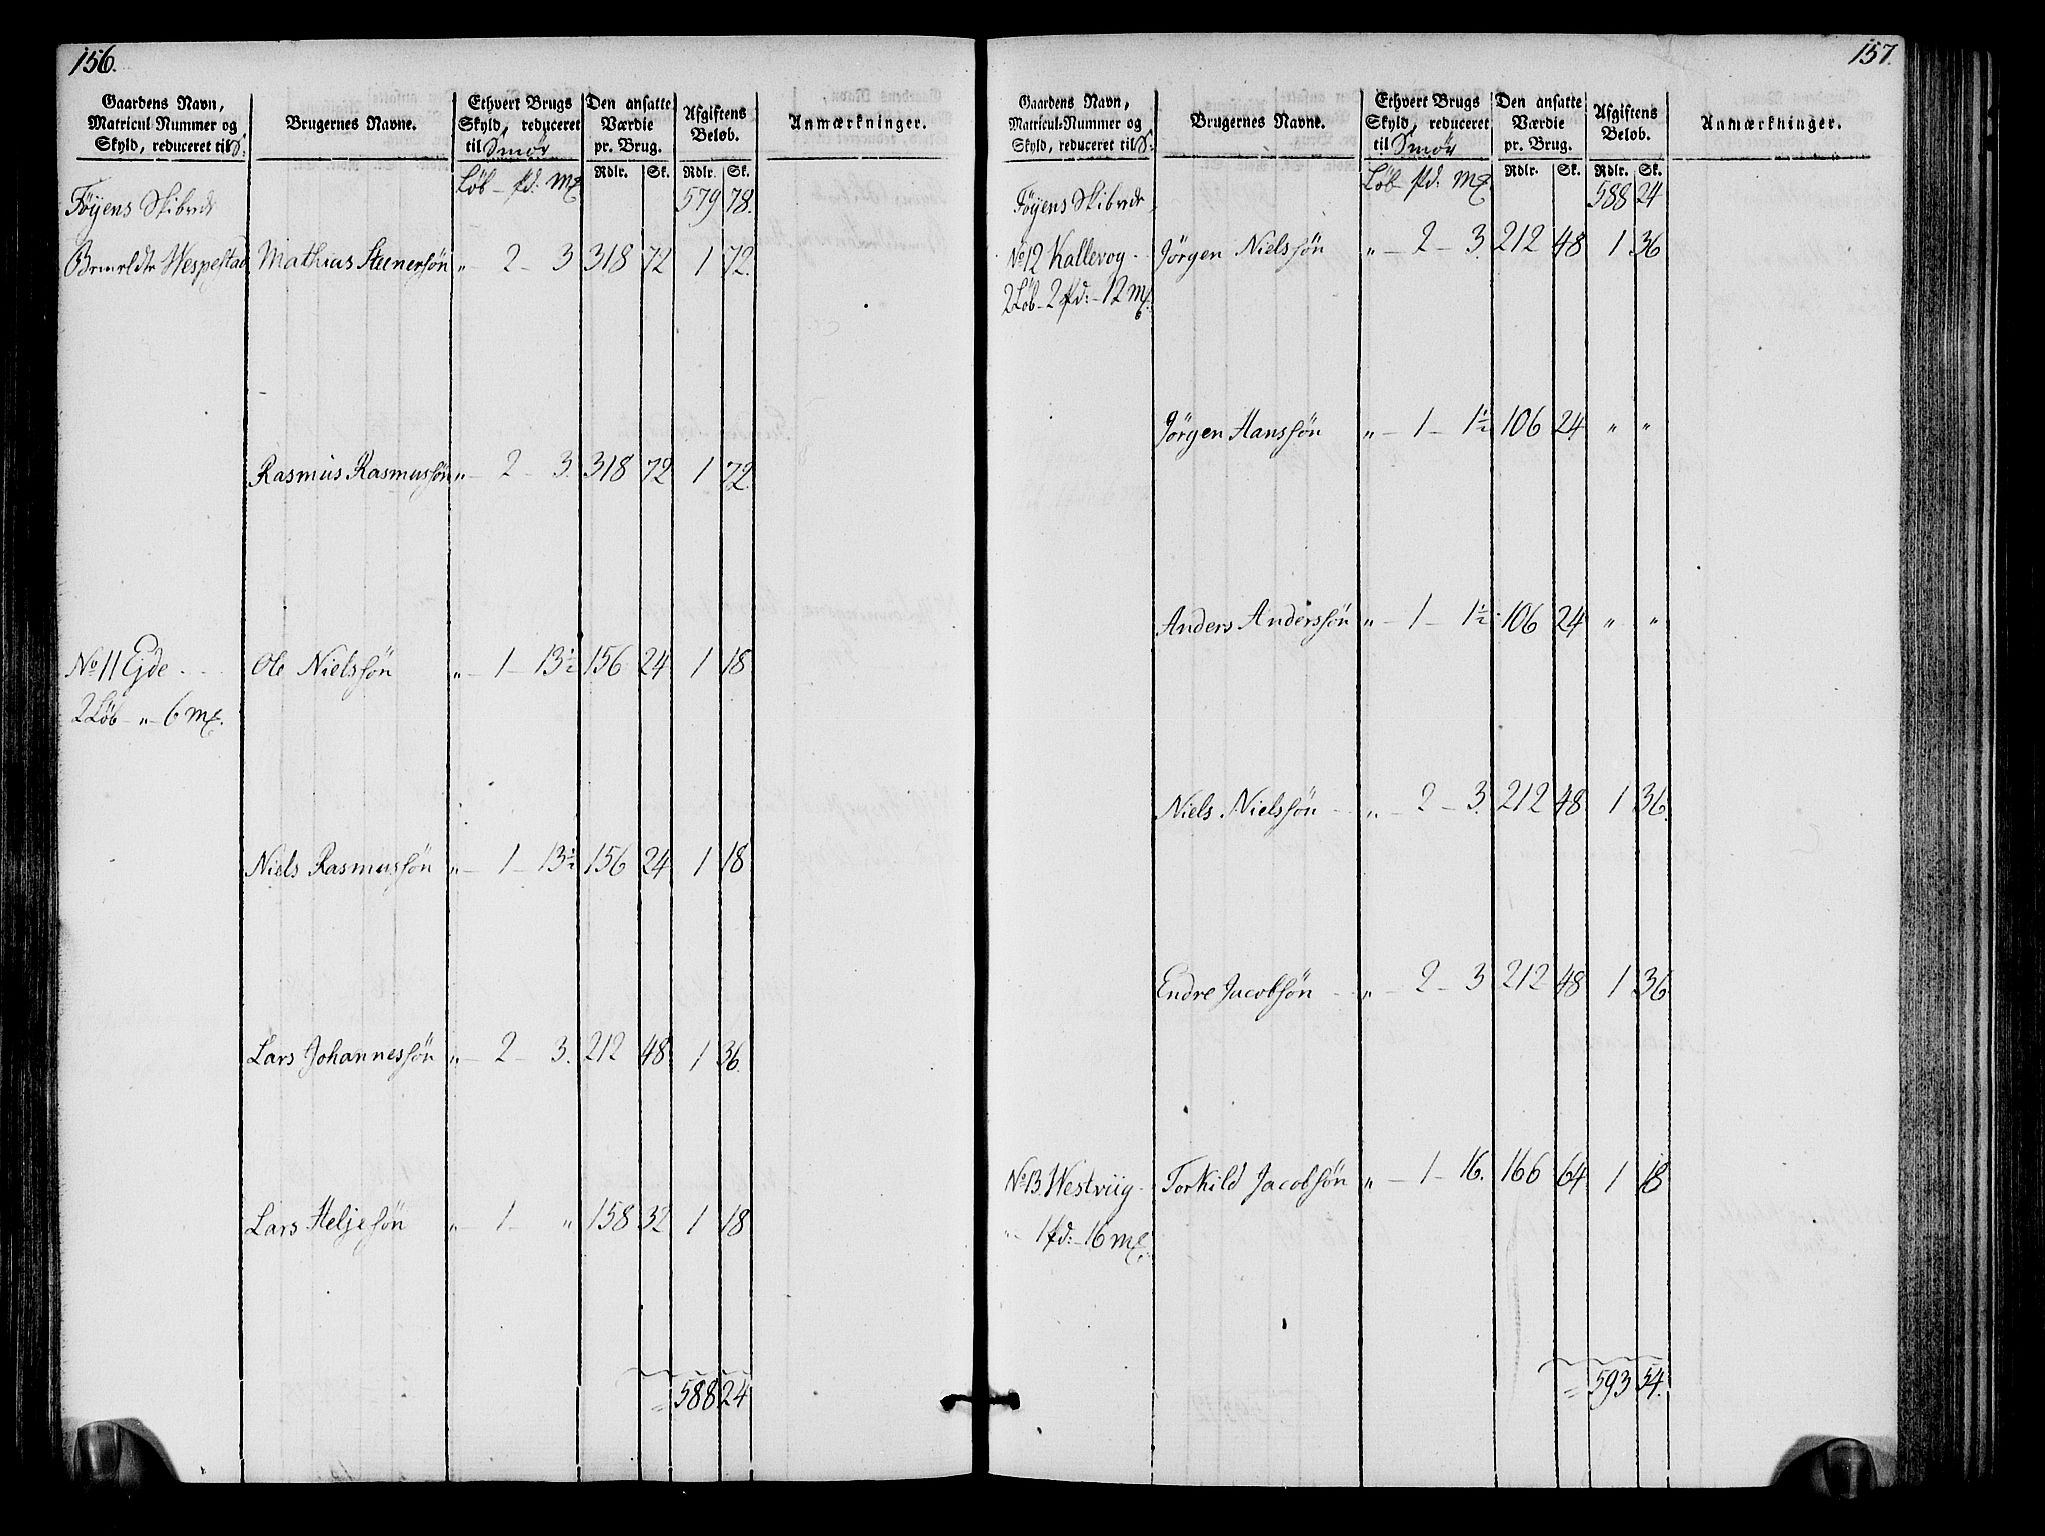 156.
Gaardens Navn, Matricul-Nummer og Skyld, reduceret til S:
Brugernes Navne.
Ethvert Brugs Skyld, reduceret til Smør
Den ansatte Værdie pr. Brug.
Afgiftens Beløb.
Anmærkninger.
Løb - pd: - mk
Rdlr. Sk. Rdlr. Sk.
Føyens Skibrede 579 78.
Wespestad Mathias Steenersøn „ - 2 - 3 318 72 1 72.
Rasmus Rasmussøn „ - 2 - 3. 318 72 1 72.
No 11 Ejde Ole Nielssøn „ - 1 - 13½ 156 24 1 18
2 Løb - „ - 6 mk.
Niels Rasmussøn „ - 1 - 13½ 156 24 1 18
Lars Johannessøn „ - 2 - 3. 212 48 1 36.
Lars Heljesøn „ - 1 - „ 158 32 1 18
= 588 24
157.
Gaardens Navn, Matricul-Nummer og Skyld, reduceret til S:
Brugernes Navne.
Ethvert Brugs Skyld, reduceret til Smør
Den ansatte Værdie pr. Brug.
Afgiftens Beløb.
Anmærkninger.
Løb - pd: mk
Rdlr. Sk. Rdlr. Sk.
Føyens Skibrede, 588 24
No 12 Kallevog - Jørgen Nielssøn „ - 2 - 3. 212 48 1 36
2 Løb - 2 pd: - 12 mk.
Jørgen Hanssøn „ - 1 - 1½ 106 24 „ „
Anders Anderssøn „ - 1 - 1½ 106 24 „ „
Niels Nielssøn „ - 2 - 3. 212 48 1 36.
Endre Jacobsøn „ - 2 - 3 212 48 1 36
No 13. Westviig - Torkild Jacobsøn „ - 1 - 16. 166 64 1 18
„ - 1 pd: - 16 mk.
= 593 54.